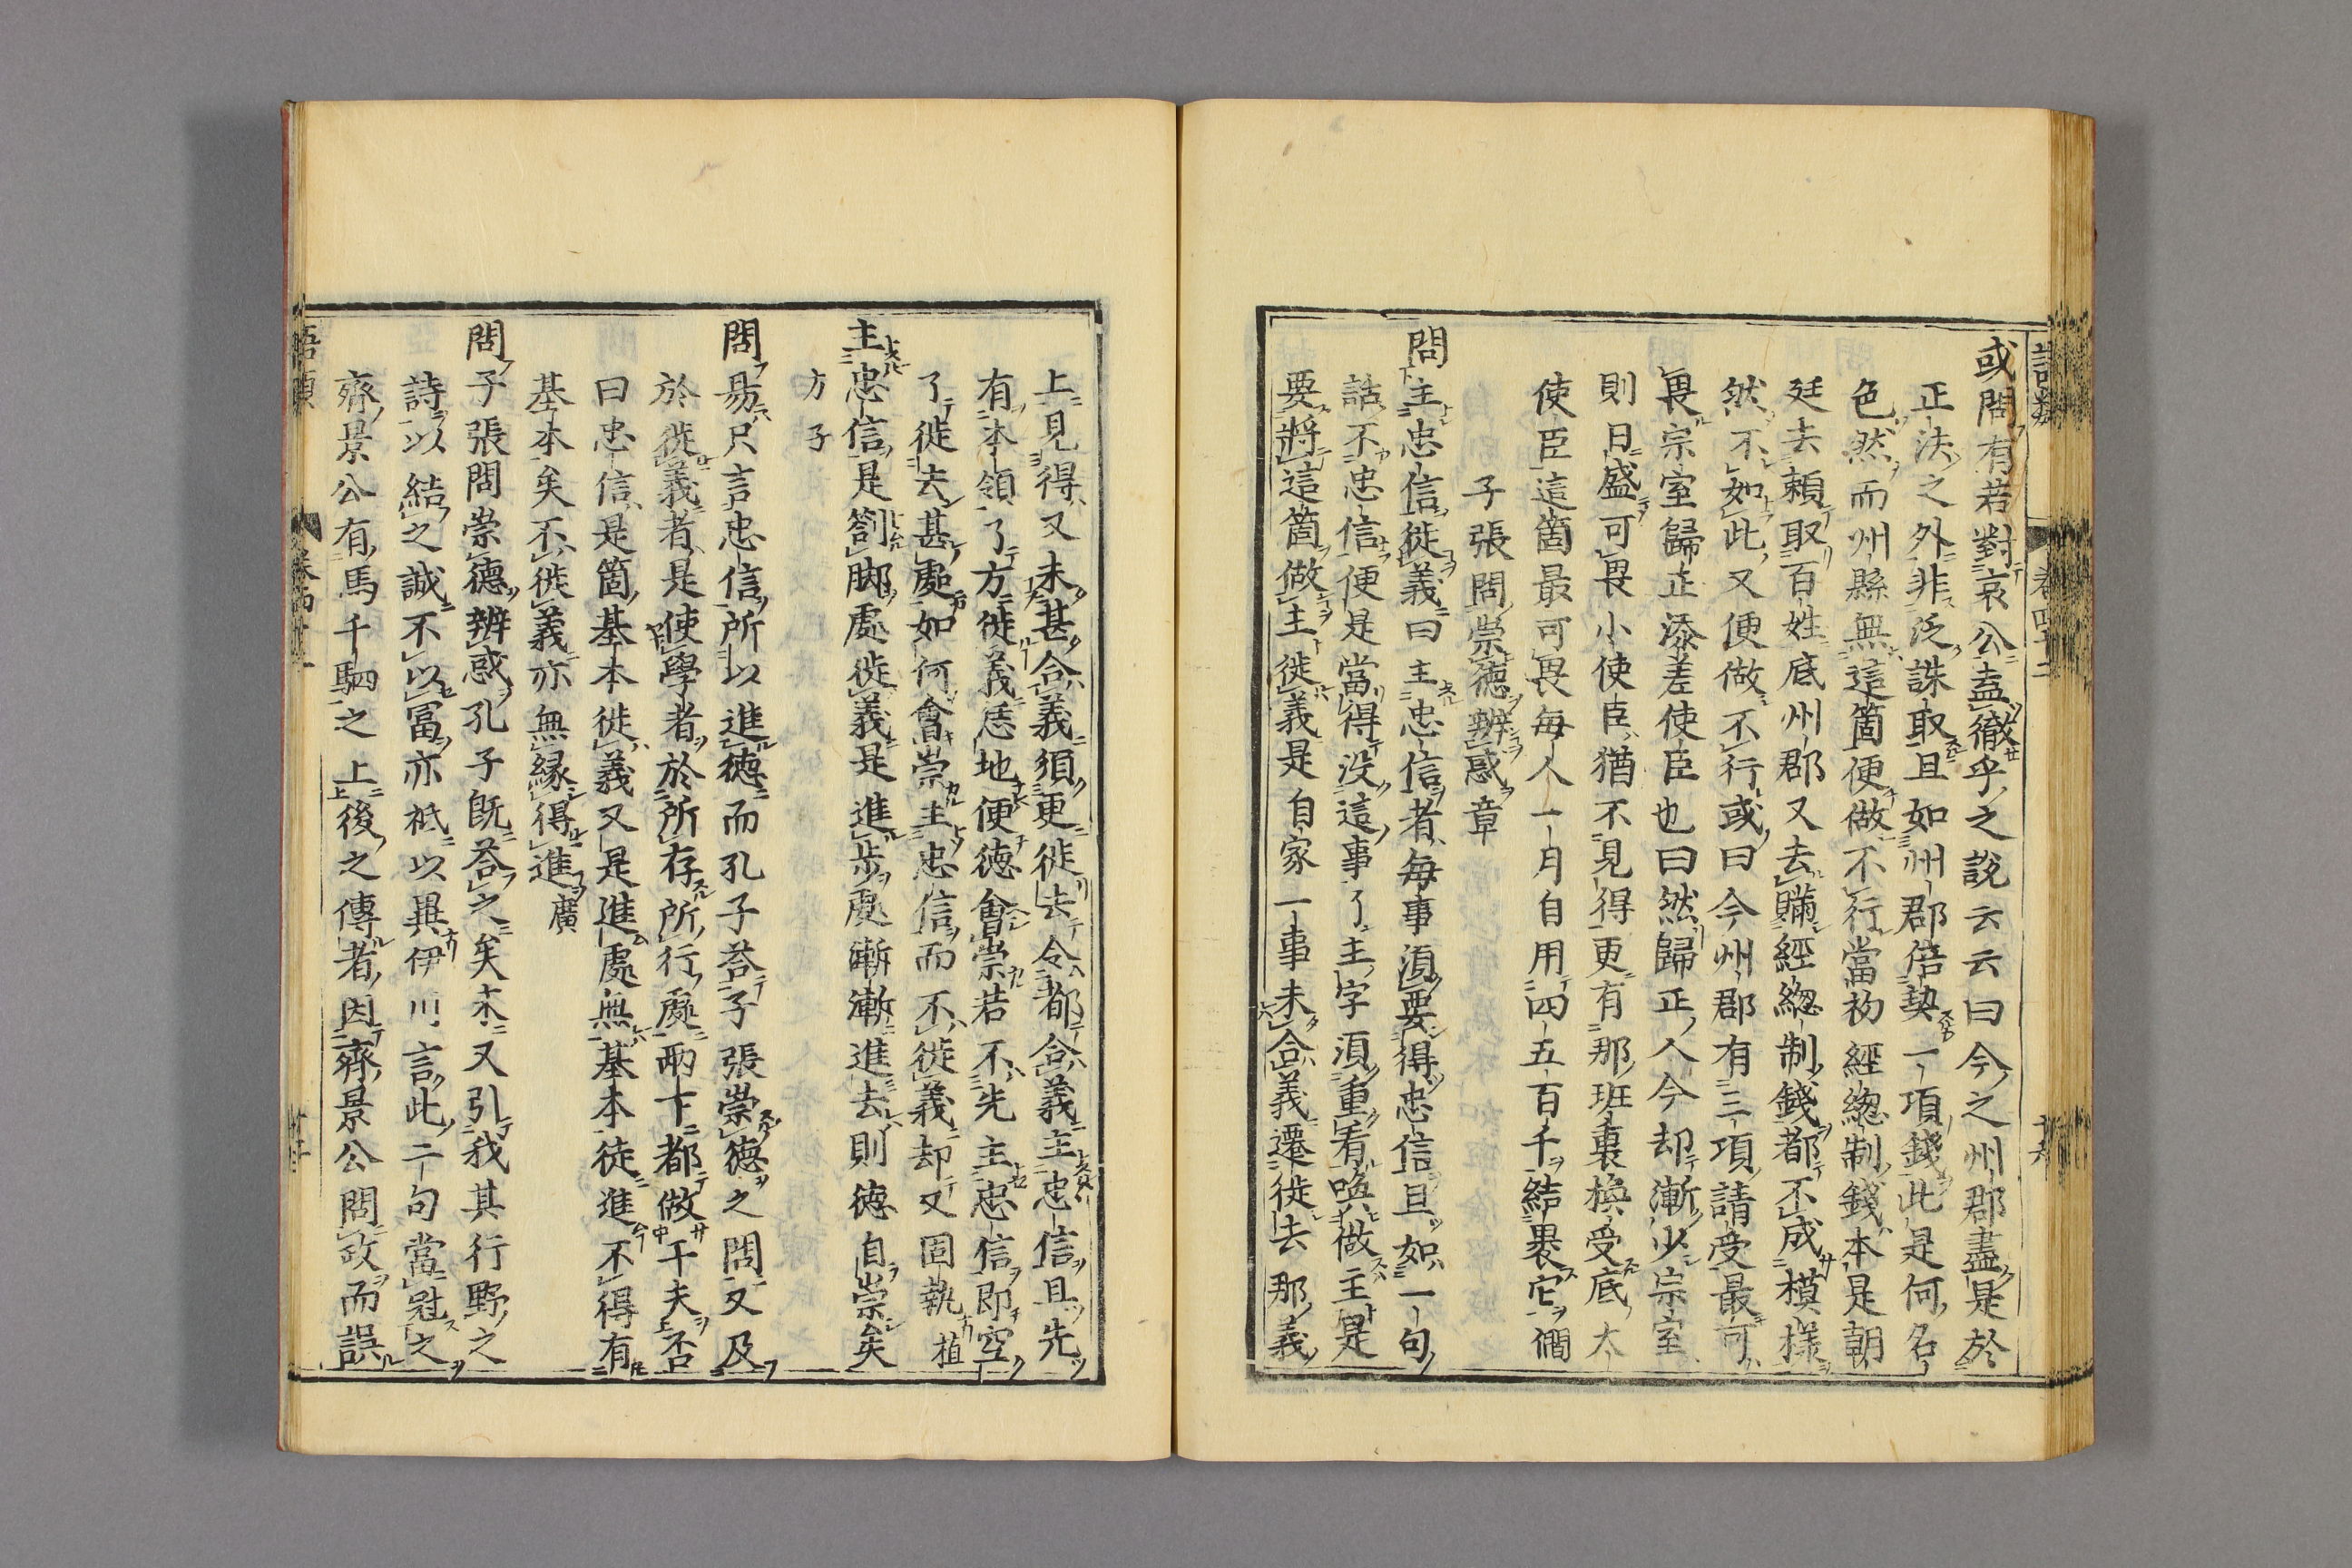 語類 卷四十二
或問有若對哀公盍徹乎之說云云曰今之州郡盡是於
正法之外非泛誅取且如州郡倍契一項錢此是何名
色然而州縣無這箇便做不行當初經緫制錢本是朝
廷去賴取百姓底州郡又去瞞經緫制錢都不成模樣
然不如此又便做不行或曰今州郡有三項請受最可
畏宗室歸正添差使臣也曰然歸正人今却漸少宗室
則日盛可畏小使臣猶不見得更有那班裏換受底大
使臣這箇最可畏每人一月自用四五百千結裹它僩
子張問崇德辨惑章
問主忠信徙義曰主忠信者每事須要得忠信且如一句
話不忠信便是當得没這事了主字須重看喚做主是
要將這箇做主徙義是自家一事未合義遷徙去那義
上見得又未甚合義須更徙去令都合義主忠信且先
有本領了方徙義恁地便德會崇若不先主忠信即空
了徙去甚處如何會崇主忠信而不徙義却又固執植
主忠信是劄脚處徙義是進步處漸漸進去則德自崇矣
方子
問易只言忠信所以進德而孔子荅子張崇德之問又及
於徙義者是使學者於所存所行處兩下都做工夫否
曰忠信是箇基本徙義又是進處無基本徙進不得有
基本矣不徙義亦無緣得進廣
問子張問崇德辨惑孔子既荅之矣末又引我其行野之
詩以結之誠不以冨亦祗以異伊川言此二句當冠之
齊景公有馬千駟之上後之傳者因齊景公問政而誤
語類 卷四十二